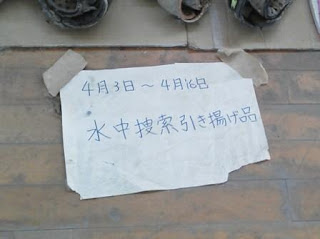 4月3日～4月16日
水中捜索引き揚げ品